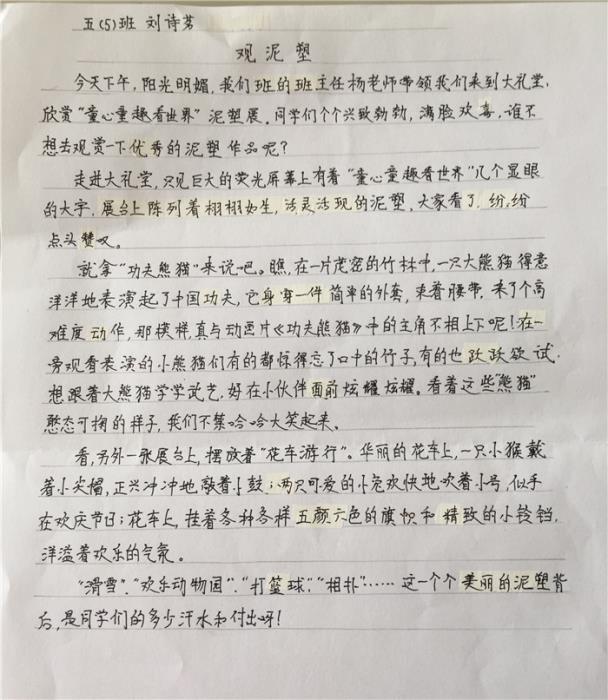 五(5)班 刘诗茗
观泥塑
今天下午,阳光明媚,我们班的班主任杨老师带领我们来到大礼堂,
欣赏“童心童趣看世界”泥塑展。同学们个个兴致勃勃,满脸欢喜,谁不
想去观赏一下优秀的泥塑作品呢?
走进大礼堂,只见巨大的荧光屏幕上有着“童心童趣看世界”几个显眼
的大字,展台上陈列着栩栩如生,活灵活现的泥塑,大家看了,纷纷
点头赞叹。
就拿“功夫熊猫”来说吧。瞧,在一片茂密的竹林中,一只大熊猫得意
洋洋地表演起了中国功夫,它身穿一件简单的外套,束着腰带,来了个高
难度动作,那模样,真与动画片《功夫熊猫》中的主角不相上下呢!在一
旁观看表演的小熊猫们有的都惊得忘了口中的竹子,有的也跃跃欲试,
想跟着大熊猫学学武艺,好在小伙伴面前炫耀炫耀。看着这些“熊猫”
憨态可掬的样子,我们不禁哈哈大笑起来。
看,另外一张展台上,摆放着“花车游行”。华丽的花车上,一只小猴戴
着小尖帽,正兴冲冲地敲着小鼓;两只可爱的小兔欢快地吹着小号,似乎
在欢庆节日;花车上,挂着各种各样五颜六色的旗帜和精致的小铃铛,
洋溢着欢乐的气氛。
“滑雪”、“欢乐动物园”、“打篮球”、“相扑”……这一个个美丽的泥塑背
后,是同学们的多少汗水和付出呀!